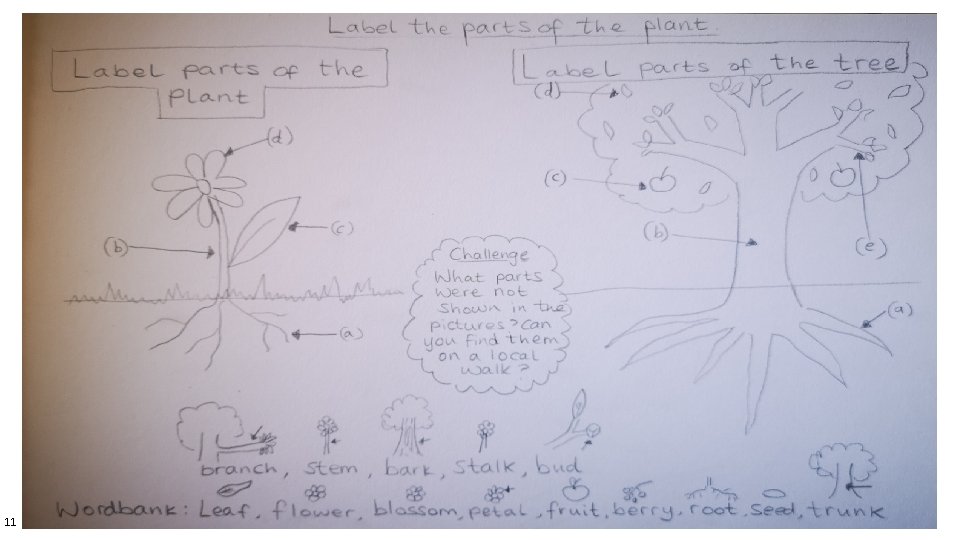 Label the parts of the plant.
Label parts of the
Plant
Label parts of the tree
(d)
(c)
(b)
(a)
(d)
(c)
(b)
(e)
(a)
Challenge
What parts
were not
shown in the
pictures? Can
you find them
on a local
walk?
branch, stem, bark, stalk, bud
Wordbank: Leaf, flower, blossom, petal, fruit, berry, root, seed, trunk
11